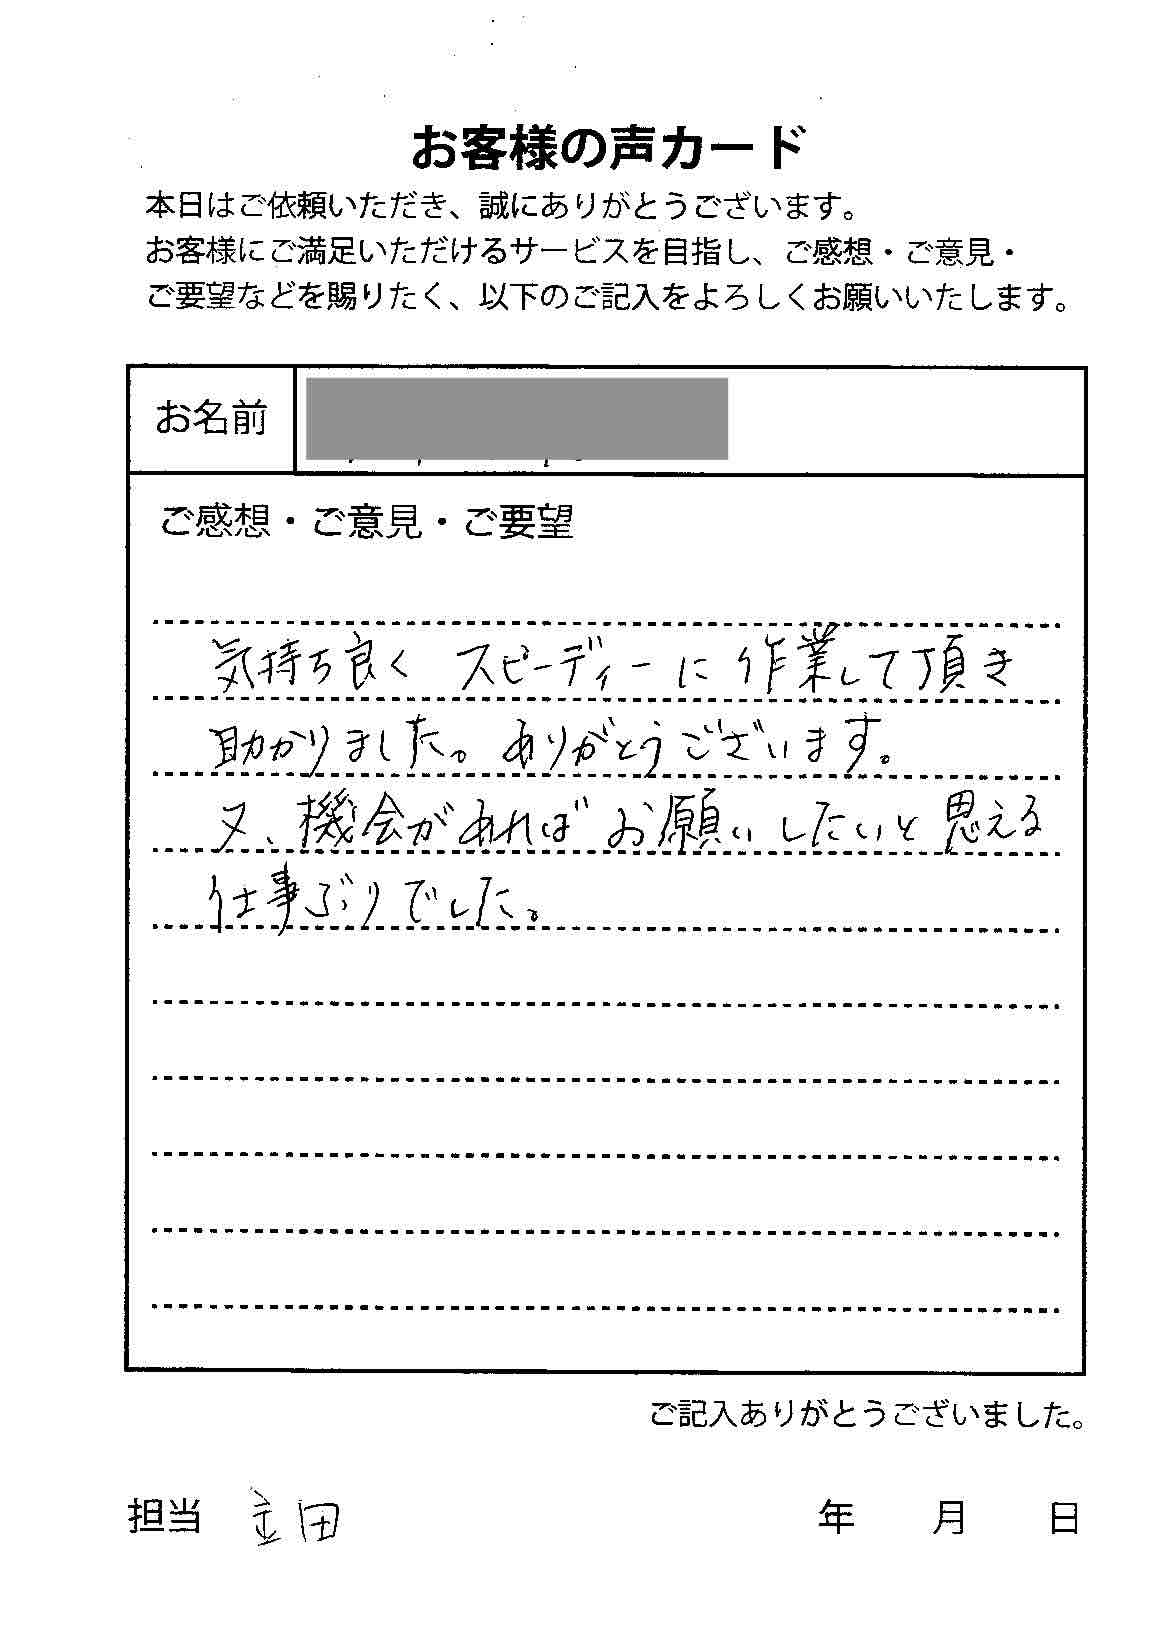 お客様の声カード
本日はご依頼いただき、誠にありがとうございます。
お客様にご満足いただけるサービスを目指し、ご感想・ご意見・
ご要望などを賜りたく、以下のご記入をよろしくお願いいたします。
お名前
ご感想・ご意見・ご要望
気持ち良く スピーディーに作業して頂き
助かりました。ありがとうございます。
又、機会があればお願いしたいと思える
仕事ぶりでした。
ご記入ありがとうございました。
担当 立田 年 月 日